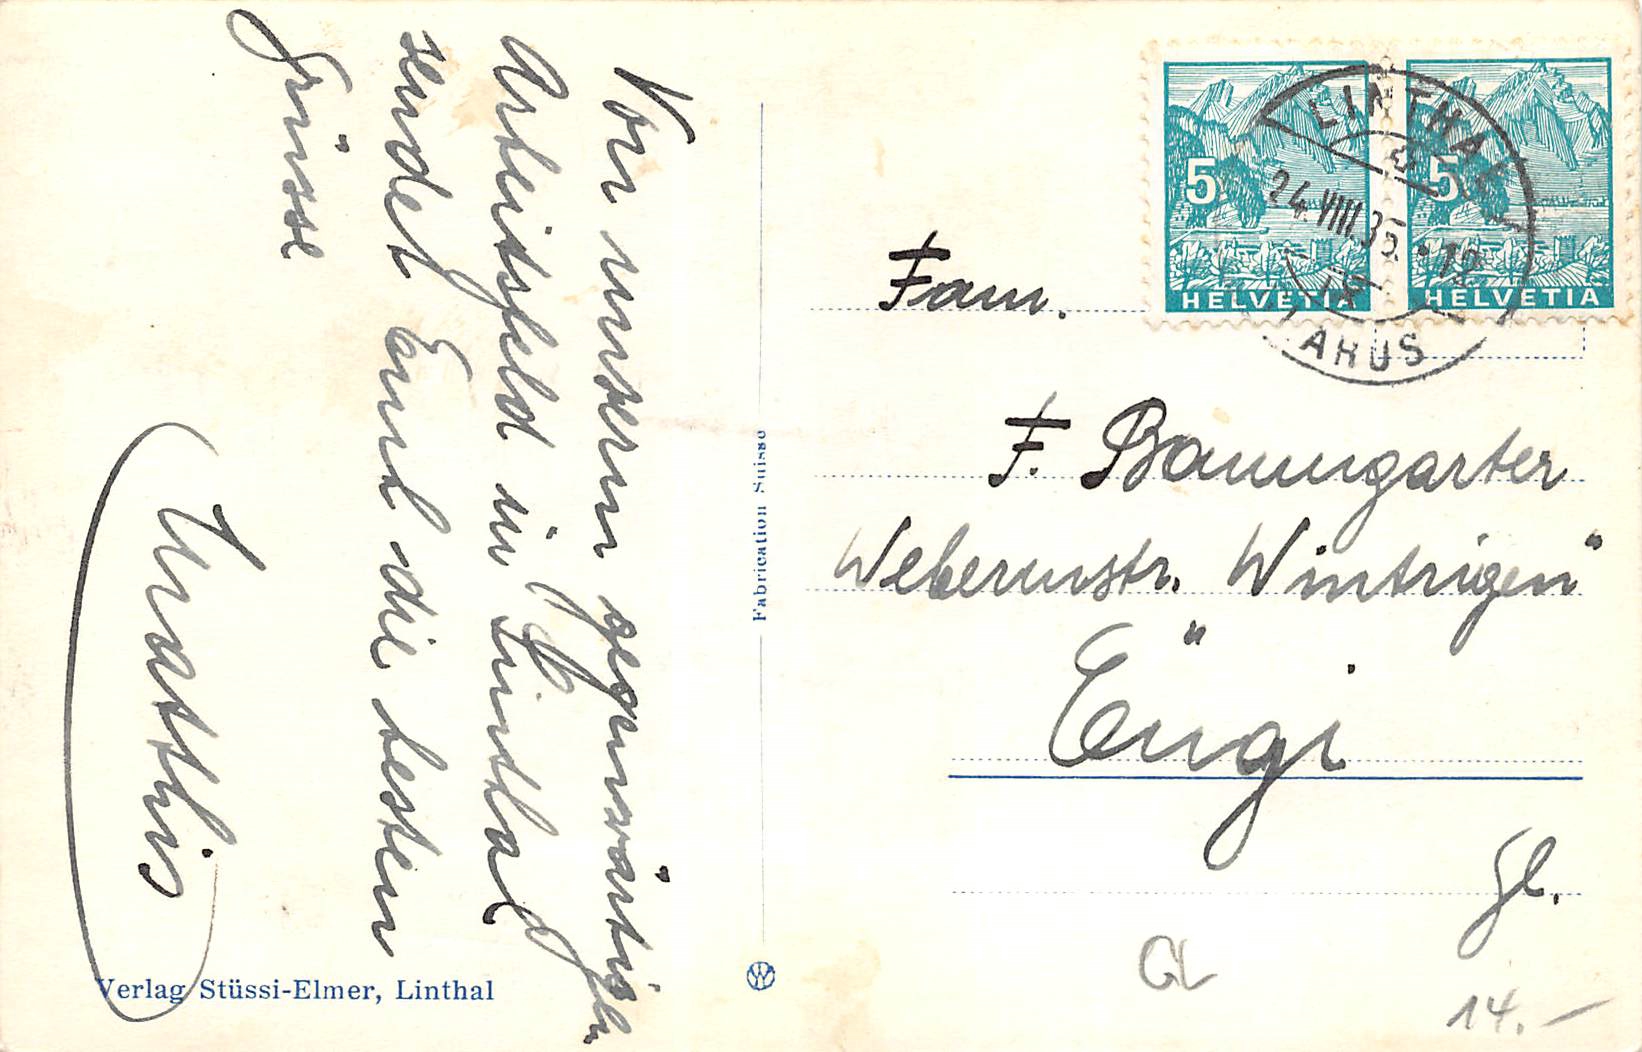 Von unserm gegenwärtigen
Arbeitsfeld in Linthal
sendet Euch die besten
Grüsse
Matthis
Verlag Stüssi-Elmer, Linthal
Fabrication Suisse
W
5
HELVETIA
5
HELVETIA
LINTHAL
24.VIII.35.-12
Fam.
F. Baumgarter
Webernstr. Wintrigen"
Engi
Gl.
GL
14.-